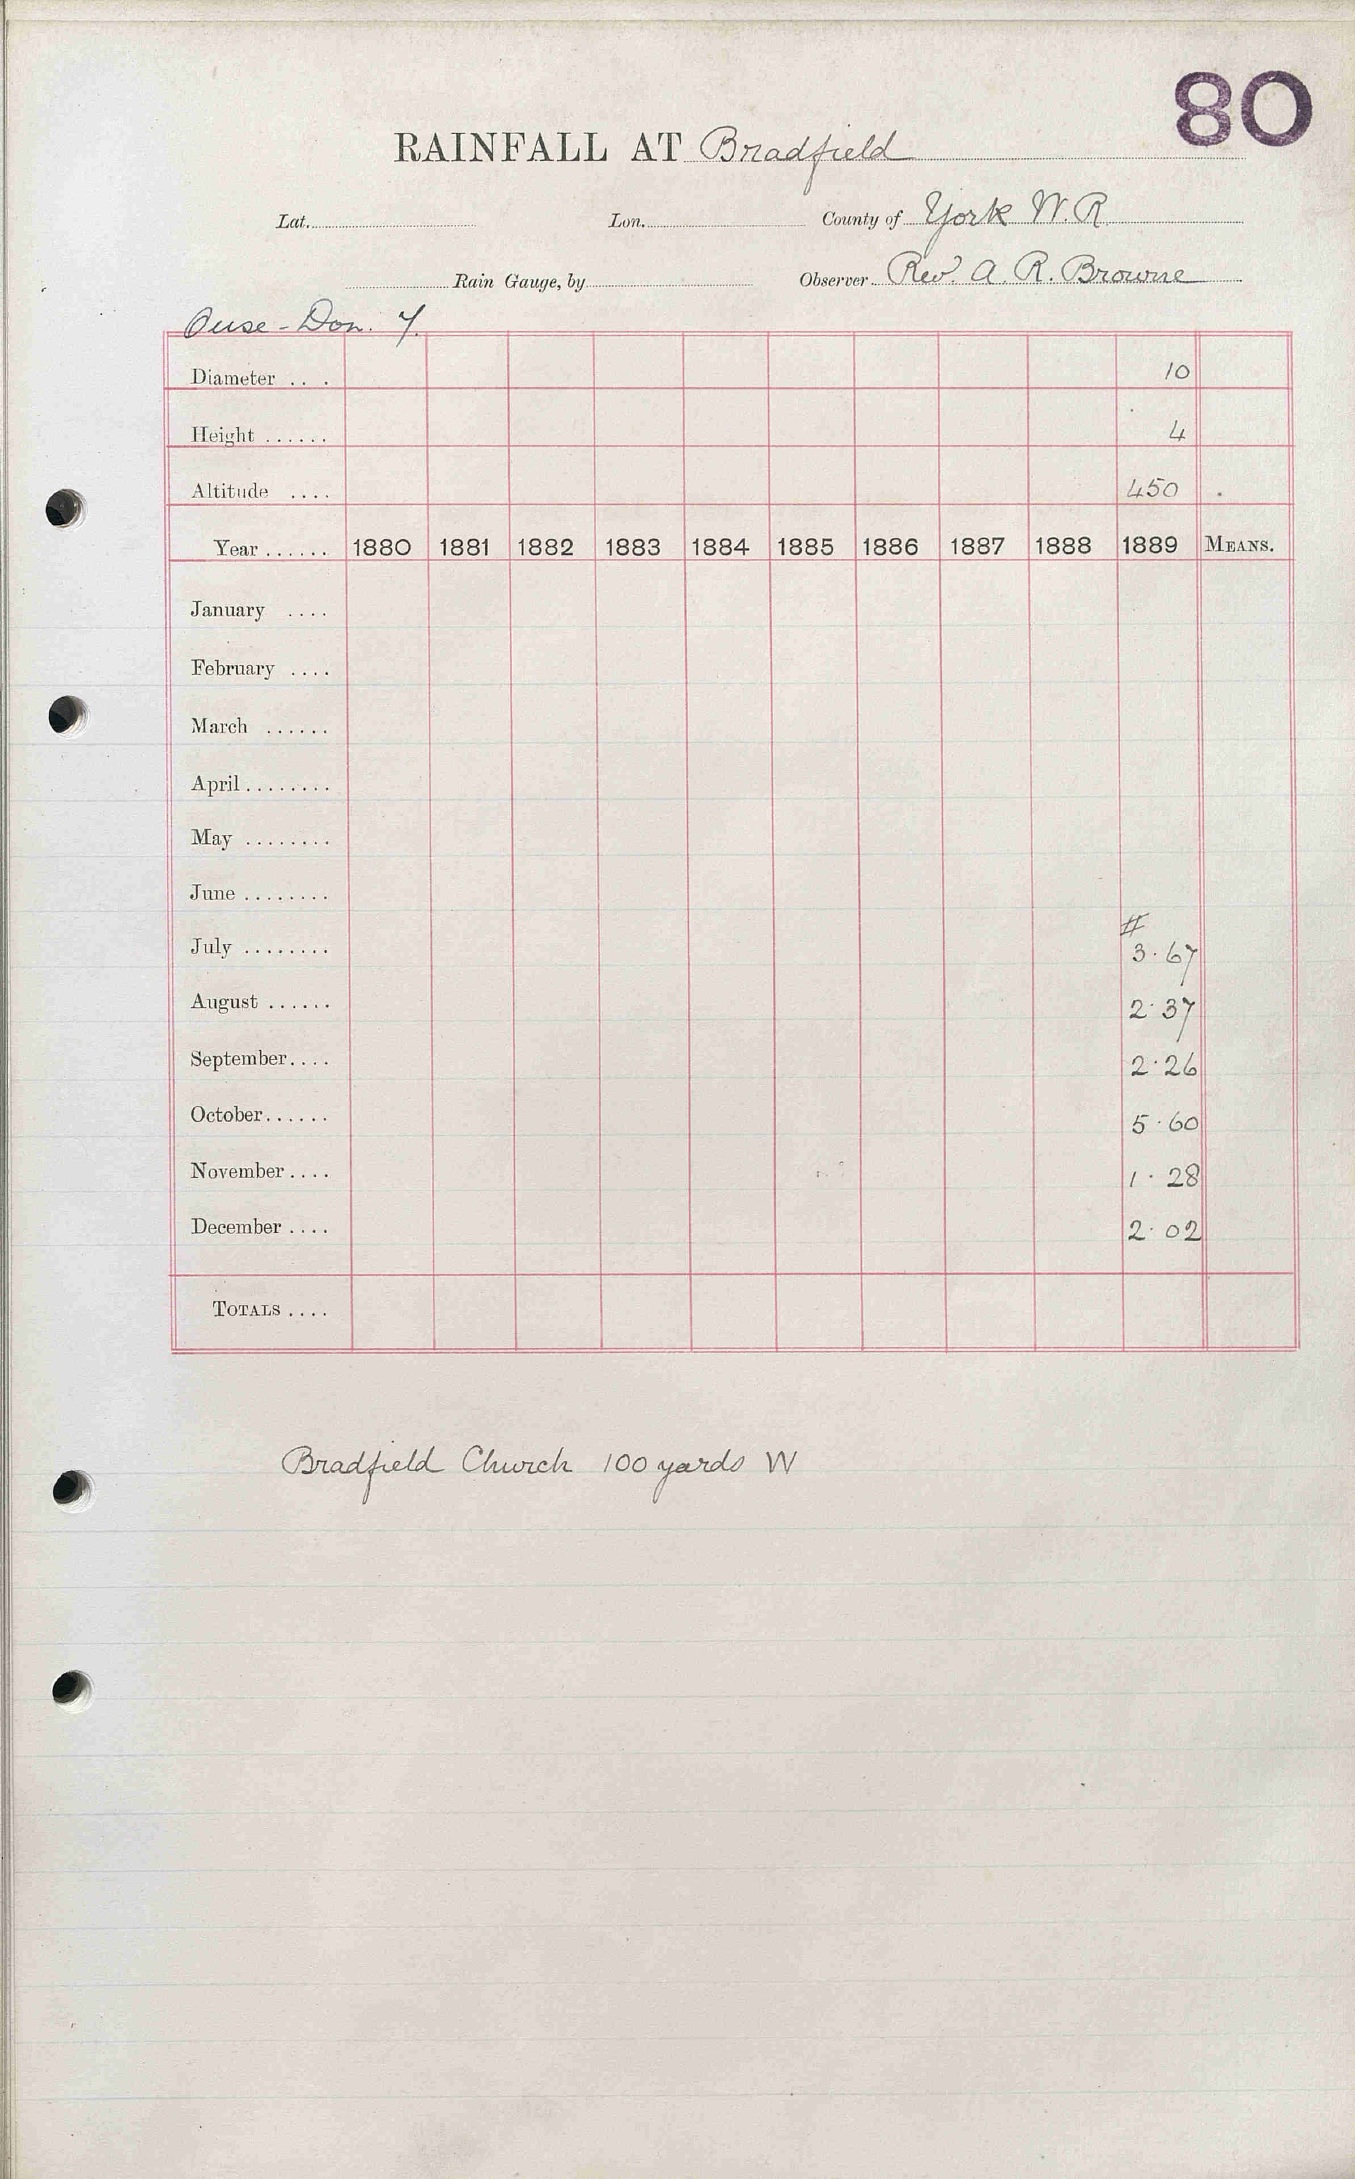 80
RAINFALL AT Bradfield
Lat. Lon. County of York W.R.
Rain Gauge, by Observer Rev. A. R. Browne
Ouse-Don. 7.
Diameter ... 10
Height ...... 4
Altitude .... 450
Year ...... 1880 1881 1882 1883 1884 1885 1886 1887 1888 1889 MEANS.
January ....
February ....
March ......
April ........
May ........
June ........
#
July ........ 3.67
August ...... 2.37
September .... 2.26
October ...... 5.60
November .... 1.28
December .... 2.02
TOTALS ....
Bradfield Church 100 yards W